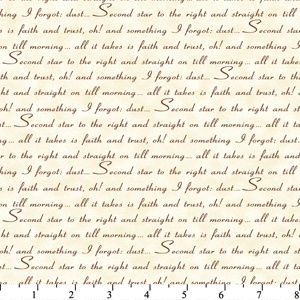 I forgot: dust... Second star to the right and straight on till
is faith and trust, oh! and something I forgot: dust... Second
Second star to the right and straight on till morning... all
till morning... all it takes is faith and trust, oh! and something
Second star to the right and straight on till morning... all it takes is
faith and trust, oh! and something I forgot: dust... Second star to the
right and straight on till morning... all it takes is faith and trust,
oh! and something I forgot: dust... Second star to the right and
dust... Second star to the right and straight on till morning...
morning... all it takes is faith and trust, oh! and something I
star to the right and straight on till morning... all it takes is
is faith and trust, oh! and something I forgot: dust... Second
Second star to the right and straight on till morning... all
till morning... all it takes is faith and trust, oh! and something
oh! and something I forgot: dust... Second star to the right
Second star to the right and straight on till morning... all it
is faith and trust, oh! and something I forgot: dust... Second
1 2 3 4 5 6 7 8